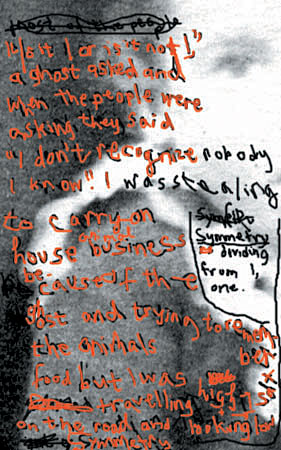 Most of the people
"Is it I or is it not I,"
a ghost asked and
when the people were
asking they said
"I don't recognize nobody
I know". I was stealing
to carry on
house ghost business
be-caused of th-e
gost and trying to remember
the animals
food but I was
travelling high 6
on the road and looking for
symmetry
Symmetry
dividing
from 1,
one.